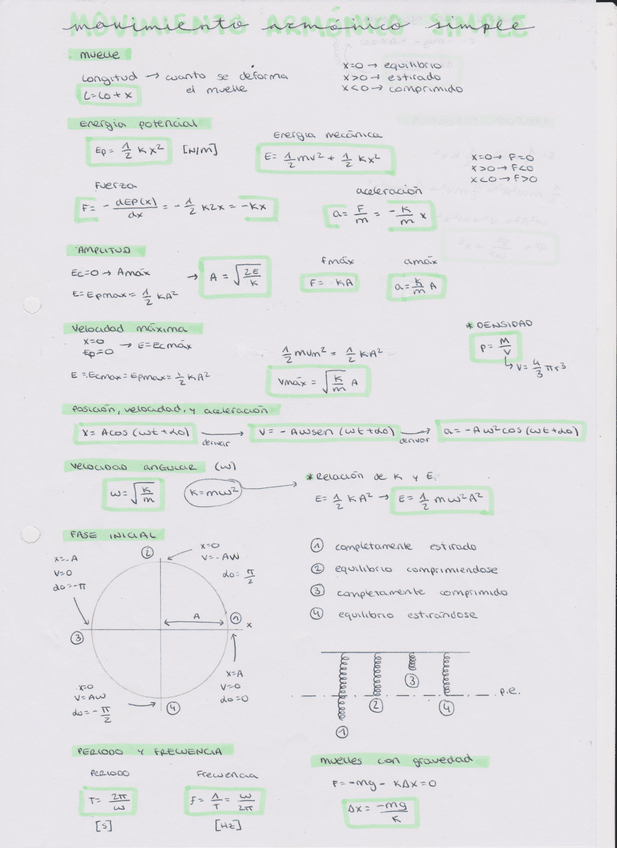 MOVIMIENTO ARMÓNICO SIMPLE
movimiento armónico simple
muelle
Longitud → cuanto se deforma el muelle
L = Lo + x
x=0 → equilibrio
x>0 → estirado
x<0 → comprimido
Energía potencial
Ep = 1/2 K x² [N/m]
Energía mecánica
E = 1/2 mv² + 1/2 Kx²
x=0 → F=0
x>0 → F<0
x<0 → F>0
Fuerza
F = - dEp(x)/dx = - 1/2 K2x = -Kx
aceleración
a = F/m = - K/m x
AMPLITUD
Ec=0 → Amáx
E = Epmax = 1/2 KA²
→ A = √(2E/K)
fmáx
F = KA
amáx
a = K/m A
Velocidad máxima
x=0
Ep=0 → E=Ecmáx
E = Ecmax = Epmax = 1/2 KA²
1/2 mvm² = 1/2 KA²
Vmáx = √(K/m) A
* DENSIDAD
ρ = M/V
↳ V = 4/3 π r³
Posición, velocidad, y aceleración
x = A cos (wt + do) → derivar
V = - AWsen (wt + do) → derivar
a = - AW² cos (wt + do)
Velocidad angular (w)
w = √(K/m)
K = mw²
* Relación de K y E
E = 1/2 KA² → E = 1/2 mw²A²
FASE INICIAL
x=-A
V=0
do=-π
②
x=0
V=-AW
do = π/2
A
①
x
③
x=0
V=AW
do = - π/2
④
x=A
V=0
do=0
① completamente estirado
② equilibrio comprimiendose
③ completamente comprimido
④ equilibrio estirándose
③
②
④
①
p.e.
PERIODO Y FRECUENCIA
PERIODO
T = 2π/w
[s]
Frecuencia
f = 1/T = w/2π
[Hz]
muelles con gravedad
F = -mg - KΔx = 0
Δx = -mg/K